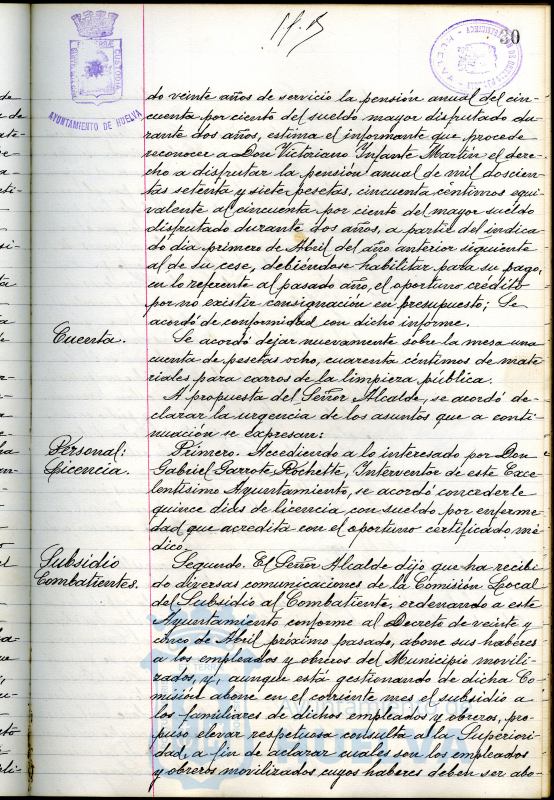 30
AYUNTAMIENTO DE HUELVA
do veinte años de servicio la pensión anual del cin-
cuenta por ciento del sueldo mayor disfrutado du-
rante dos años, estima el informante que procede
reconocer a Don Victoriano Infante Martín el dere-
cho a disfrutar la pensión anual de mil doscien-
tas setenta y siete pesetas, cincuenta céntimos equi-
valente al cincuenta por ciento del mayor sueldo
disfrutado durante dos años, a partir del indica
do día primero de Abril del año anterior siguiente
al de su cese, debiéndose habilitar para su pago,
en lo referente al pasado año, el oportuno crédito
por no existir consignación en presupuesto; Se
acordó de conformidad con dicho informe.
Cuenta.
Se acordó dejar nuevamente sobre la mesa una
cuenta de pesetas ocho, cuarenta céntimos de mate
riales para carros de la limpieza pública.
A propuesta del Señor Alcalde, se acordó de-
clarar la urgencia de los asuntos que a conti-
nuación se expresan:
Personal:
Licencia.
Primero. Accediendo a lo interesado por Don
Gabriel Garrote Rochette, Interventor de este Exce
lentísimo Ayuntamiento, se acordó concederle
quince días de licencia con sueldo por enferme
dad que acredita con el oportuno certificado mé
dico.
Subsidio
Combatientes.
Segundo. El Señor Alcalde dijo que ha recibi
do diversas comunicaciones de la Comisión Local
del Subsidio al Combatiente, ordenando a este
Ayuntamiento conforme al Decreto de veinte y
cinco de Abril próximo pasado, abone sus haberes
a los empleados y obreros del Municipio movili-
zados, y, aunque está gestionando de dicha Co
misión abone en el corriente mes el subsidio a
los familiares de dichos empleados y obreros, pro-
puso elevar respetuosa consulta a la Superiori-
dad, a fin de aclarar cuales son los empleados
y obreros movilizados cuyos haberes deben ser abo-
Ayuntamiento de
HUELVA